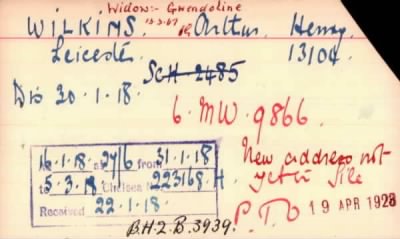 Widow:- Gwendoline
WILKINS. 13.3.67 Arthur Henry
Leicester 13104.
SCH 2485
Dis 30.1.18.
6.MW.9866.
16.1.18. at 27/6 from 31.1.18
to 5.3.18. Chelsea No 223168.H.
Received 22.1.18.
New address not
yet on file
P.T.O 19 APR 1928
B.H.2.B.3939.